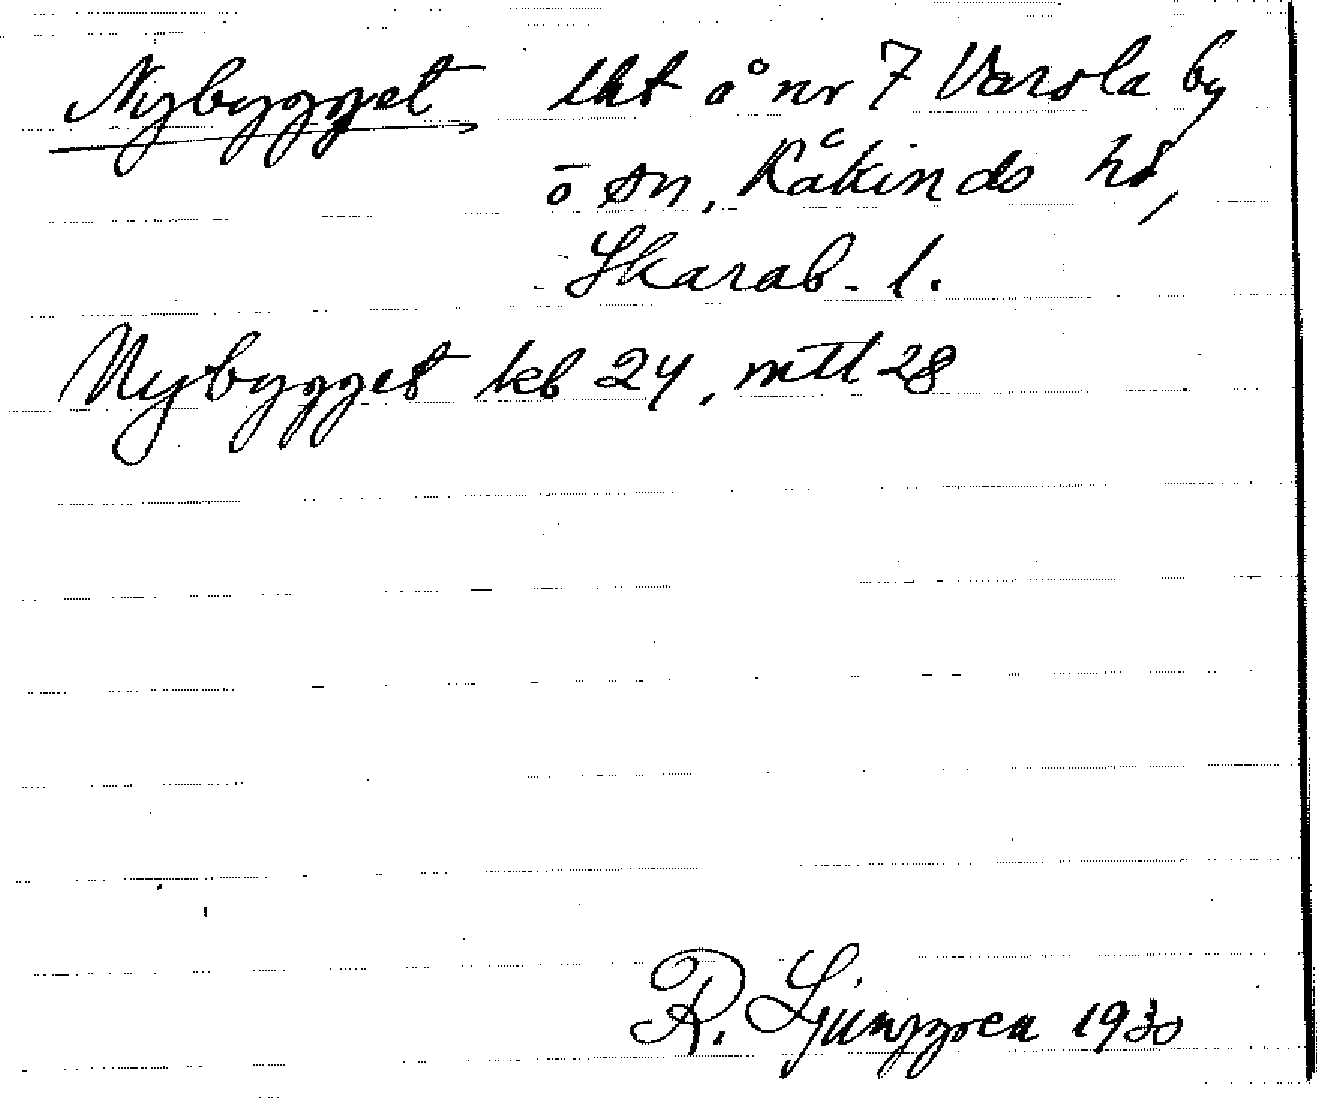 Nybygget lht å nr 7 Varola by
ö sn, Kåkinds hd,
Skarab. l.
Nybygget kb 24, mtl 28
R. Ljunggren 1930